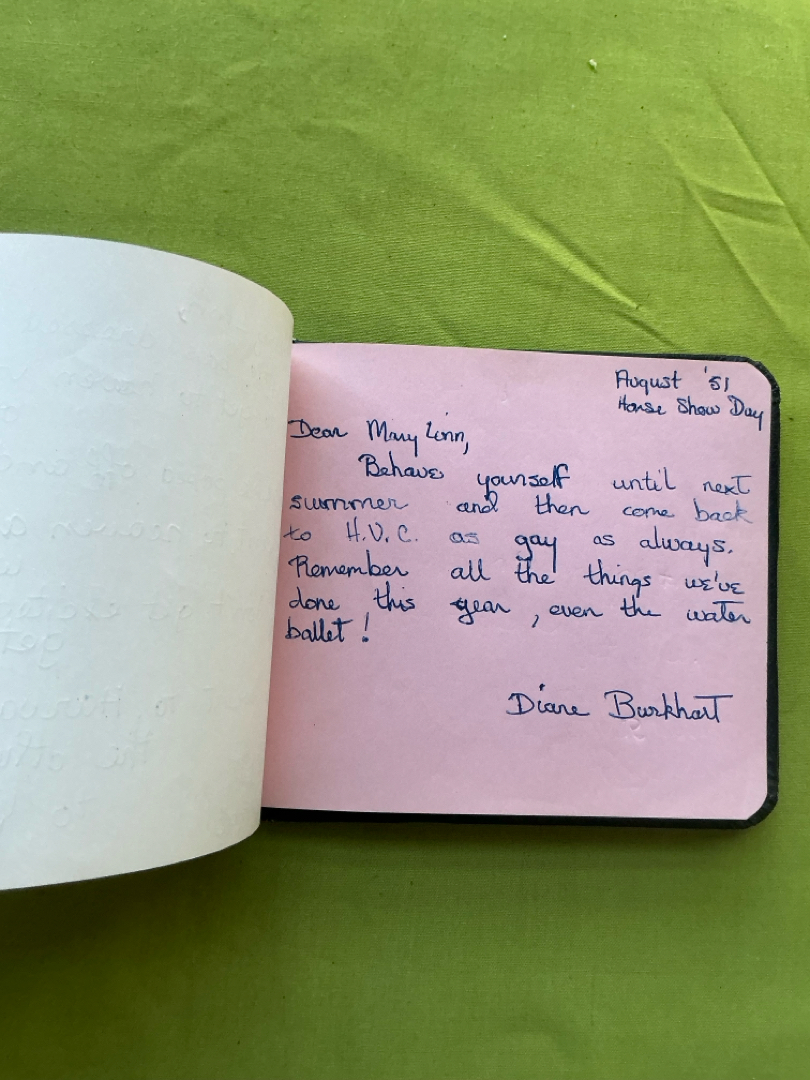 August '51
Horse Show Day
Dear Mary Linn,
Behave yourself until next
summer and then come back
to H.V.C. as gay as always.
Remember all the things we've
done this year, even the water
ballet!
Diane Burkhart